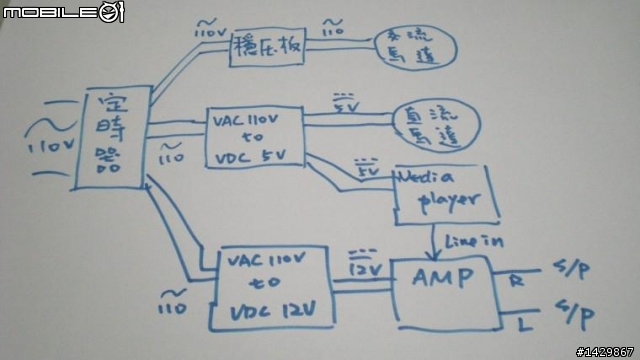 MOBILE01
~
110V
定時器
~
110V
穩压板
~
110
交流
馬達
~
110
VAC 110V
to
VDC 5V
5V
直流
馬達
5V
Media
player
Line in
~
110
VAC 110V
to
VDC 12V
12V
AMP
R
S/P
L
S/P
#1429867